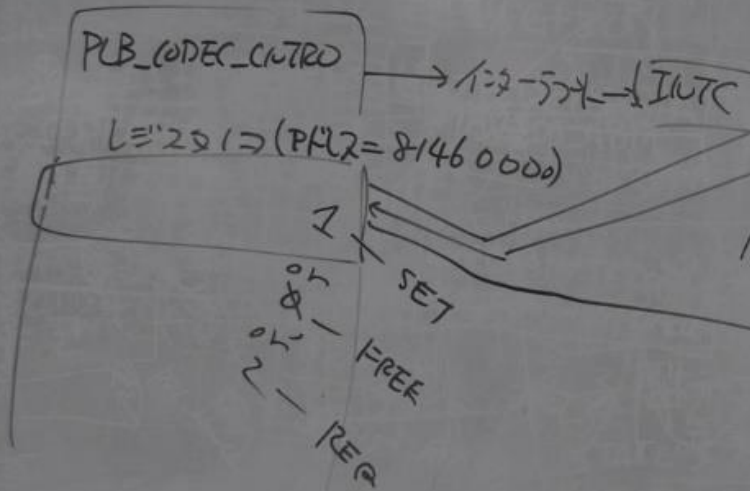 PLB_CODEC_CNTRO
インターラプト
INTC
レジスタ1つ(アドレス=81460000)
1 SET
or
0 FREE
or
2 REQ